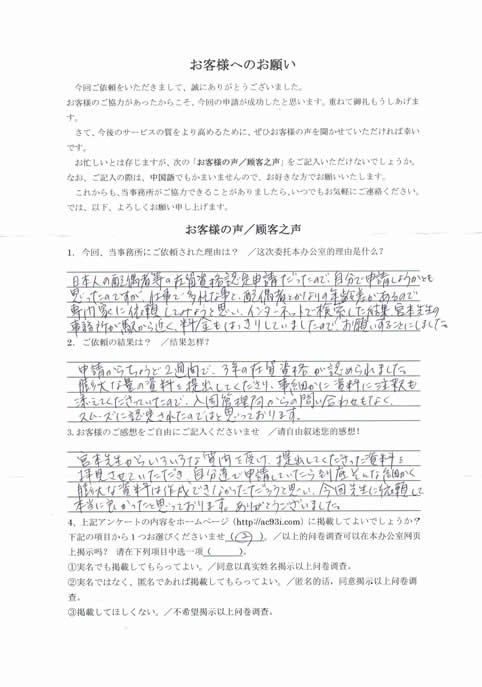 お客様へのお願い
今回ご依頼をいただきまして、誠にありがとうございました。
お客様のご協力があったからこそ、今回の申請が成功したと思います。重ねて御礼もうしあげま
す。
さて、今後のサービスの質をより高めるために、ぜひお客様の声を聞かせていただければ幸い
です。
お忙しいとは存じますが、次の「お客様の声／顧客之声」をご記入いただけないでしょうか。
なお、ご記入の際は、中国語でもかまいませんので、お好きな方でお願いいたします。
これからも、当事務所がご協力できることがありましたら、いつでもお気軽にご連絡ください。
では、以下、よろしくお願い申し上げます。
お客様の声／顧客之声
1．今回、当事務所にご依頼された理由は？　／这次委托本办公室的理由是什么?
日本人の配偶者等の在留資格認定申請だったので、自分で申請しようかとも
思ったのですが、仕事で多忙な事と、配偶者とかなりの年齢差があるので
専門家に依頼してみようと思い、インターネットで検索した結果、宮本先生の
事務所が駅から近く、料金もはっきりしていましたので、お願いすることにしました。
2．ご依頼の結果は？　／结果怎样?
申請からちょうど2週間で、3年の在留資格が認められました。
膨大な量の資料を提出してくださり、事細かに資料に注釈も
添えてくださっていたので、入国管理局からの問い合わせもなく、
スムーズに認定されたのではと思っております。
3.お客様のご感想をご自由にご記入くださいませ　／请自由叙述您的感想!
宮本先生からいろいろな質問を受け、提出してくださった資料を
拝見させていただき、自分達で申請していたら到底そんな細かく
膨大な資料は作成できなかっただろうと思い、今回先生に依頼して
本当に良かったと思っております。ありがとうございました。
4、上記アンケートの内容をホームページ（http://ac93i.com）に掲載してよいでしょうか？
下記の項目から1つお選びくださいませ（②）。／以上的问卷调查可以在本办公室网页
上揭示吗?　请在下列项目中选一项（　　）。
①実名でも掲載してもらってよい。／同意以真实姓名揭示以上问卷调查。
②実名ではなく、匿名であれば掲載してもらってよい。／匿名的话，同意揭示以上问卷调
查。
③掲載してほしくない。／不希望揭示以上问卷调查。